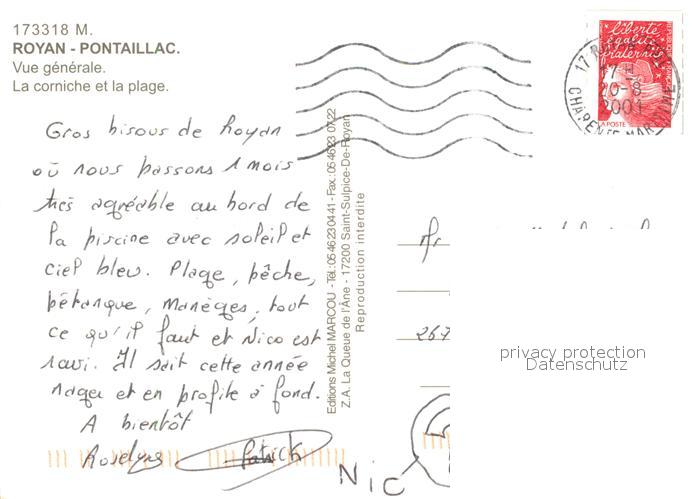 173318 M.
ROYAN - PONTAILLAC.
Vue générale.
La corniche et la plage.
Gros bisous de Royan
où nous passons 1 mois
très agréable au bord de
la piscine avec soleil et
ciel bleu. Plage, pêche,
pétanque, manèges, tout
ce qu'il faut et Nico est
ravi. Il sait cette année
nager et en profite à fond.
A bientôt
Roselyne Patrick
NIC
Editions Michel MARCOU - Tél.: 05 46 23 04 41 - Fax.: 05 46 23 07 22
Z.A. La Queue de l'Âne - 17200 Saint-Sulpice-De-Royan
Reproduction interdite
liberté
égalité
fraternité
REPUBLIQUE FRANÇAISE
LA POSTE
17 H
20-8
2001
CHARENTE MARITIME
Mr
267
privacy protection
Datenschutz